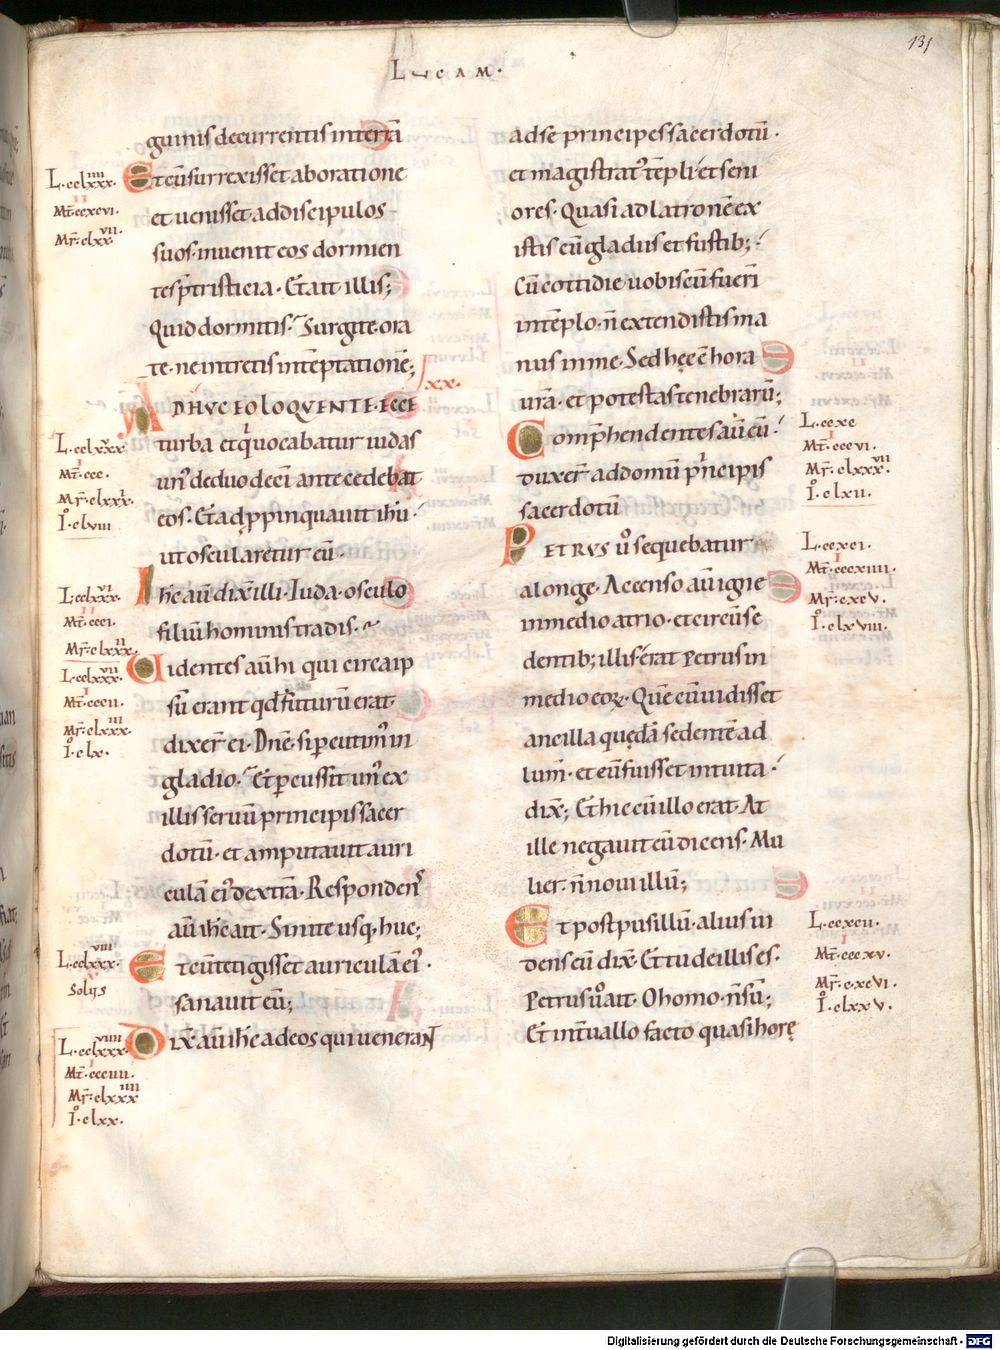 131
LUCAM.
guinis decurrentis interrā
L.cclxxx.iiii
Mt̄.ccxcvi.
Mr̄.clxx.vii.
Et cū surrexisset ab oratione
et venisset ad discipulos
suos. invenit eos dormien
tes p̄ tristicia. Et ait illis;
Quid dormitis. Surgite. ora
te. ne intretis in tēptationē;
xx.
ADHVC EO LOQVENTE. ECCE
L.cclxxx.v
Mt̄.ccc.
Mr̄.clxxx.i.
Io.clviii
turba et qui vocabatur iudas
un' de duodeci antecedebat
eos. Et apppinquavit ihū.
ut oscularetur eū.
L.cclxxx.vi
Mt̄.ccci.
Mr̄.clxxx.ii
Ih̄c aū dix̄ illi. Iuda. osculo
filiū hominis tradis.
L.cclxxx.vii
Mt̄.cccii.
Mr̄.clxxx.iii
Io.clx.
Videntes aū hi qui circa ip
sū erant qd̄ futurū erat.
dixer̄ ei. Dn̄e. si percutim' in
gladio. Et percussit un' ex
illis servū principis sacer
dotū. et amputavit auri
culā ei' dextrā. Respondens
aū ih̄c ait. Sinite usq; huc;
L.cclxxx.viii
Solus
Et cū tetigisset auriculā ei'.
sanavit eū;
L.cclxxx.viiii
Mt̄.ccciiii.
Mr̄.clxxx.iiii
Io.clxx.
Dix̄ aū ih̄c ad eos qui venerant
ad se principes sacerdotū.
et magistrat' tēpli et seni
ores. Quasi ad latronē ex
istis cū gladiis et fustib;.
Cū cottidie vobiscū fueri
in tēplo. n̄ extendistis ma
nus in me. Sed hęc ē hora
vr̄a. et potestas tenebrarū;
L.ccxc
Mt̄.cccvi.
Mr̄.clxxx.vii
Io.clxii.
Comp̄hendentes aū eū.
duxer̄ ad domū principis
sacerdotū
L.ccxci.
Mt̄.cccxiiii.
Mr̄.cxcv.
Io.clxviii.
PETRVS v̄o sequebatur
a longe. Accenso aū igne
in medio atrio. et circūse
dentib; illis. erat Petrus in
medio eoꝝ. Quē cū vidisset
ancilla quędā sedentē ad
lum̄. et eū fuisset intuita.
dix̄; Et hic cū illo erat. At
ille negavit eū dicens. Mu
lier. n̄ novi illū;
L.ccxcii.
Mt̄.cccxv.
Mr̄.cxcvi.
Io.clxxv.
Et post pusillū. alius vi
dens eū dix̄. Et tu de illis es.
Petrus v̄o ait. O homo. n̄ sū;
Et intvallo facto quasi horę
Digitalisierung gefördert durch die Deutsche Forschungsgemeinschaft - DFG